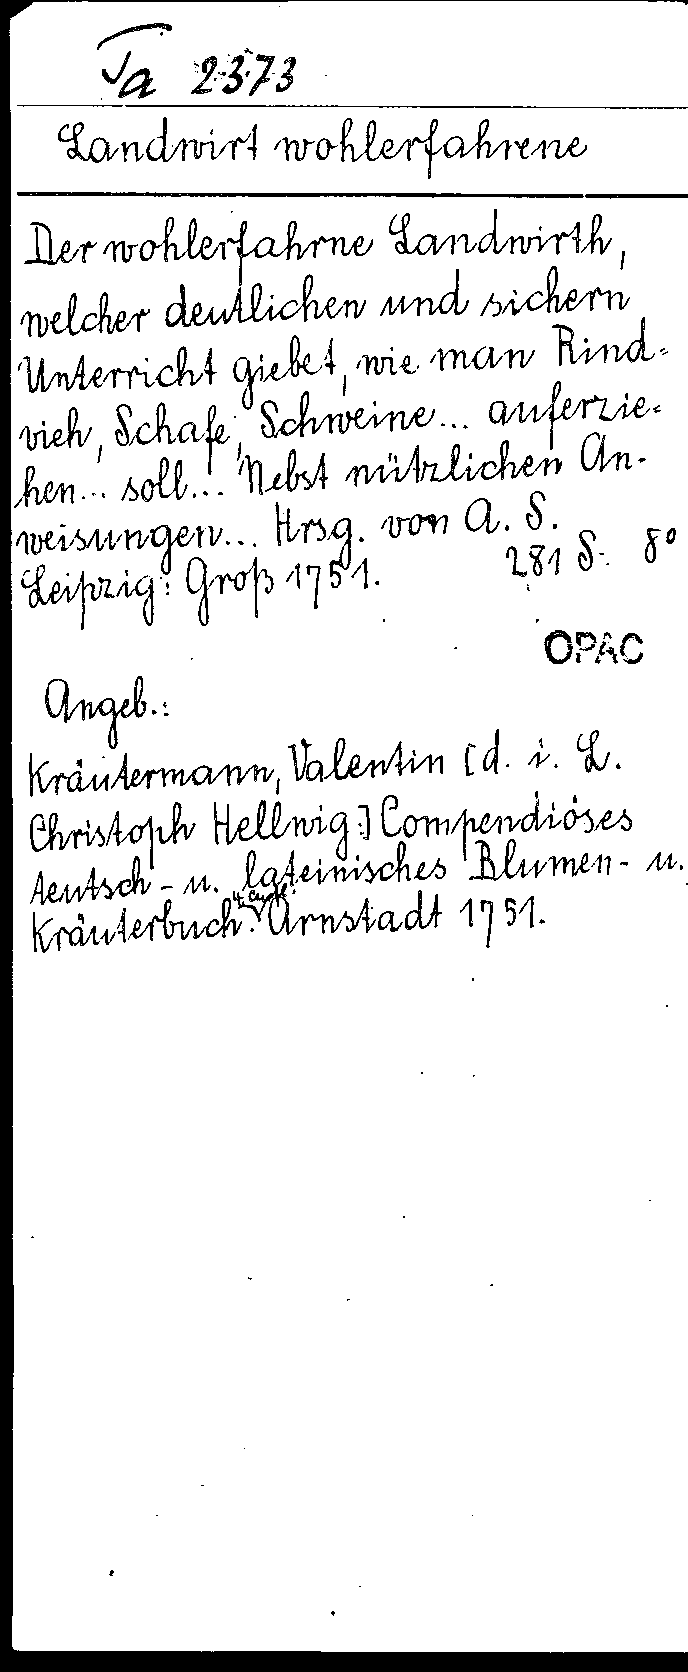 Ta 2373
Landwirt wohlerfahrene
Der wohlerfahrne Landwirth,
welcher deutlichen und sichern
Unterricht giebet, wie man Rind-
vieh, Schafe, Schweine... auferzie-
hen... soll... Nebst nützlichen An-
weisungen... Hrsg. von A. S.
Leipzig: Groß 1751. 281 S. 8°
OPAC
Angeb.:
Kräutermann, Valentin [d. i. L.
Christoph Hellwig:] Compendiöses
teutsch- u. lateinisches Blumen- u.
Kräuterbuch. 4. Aufl. Arnstadt 1751.